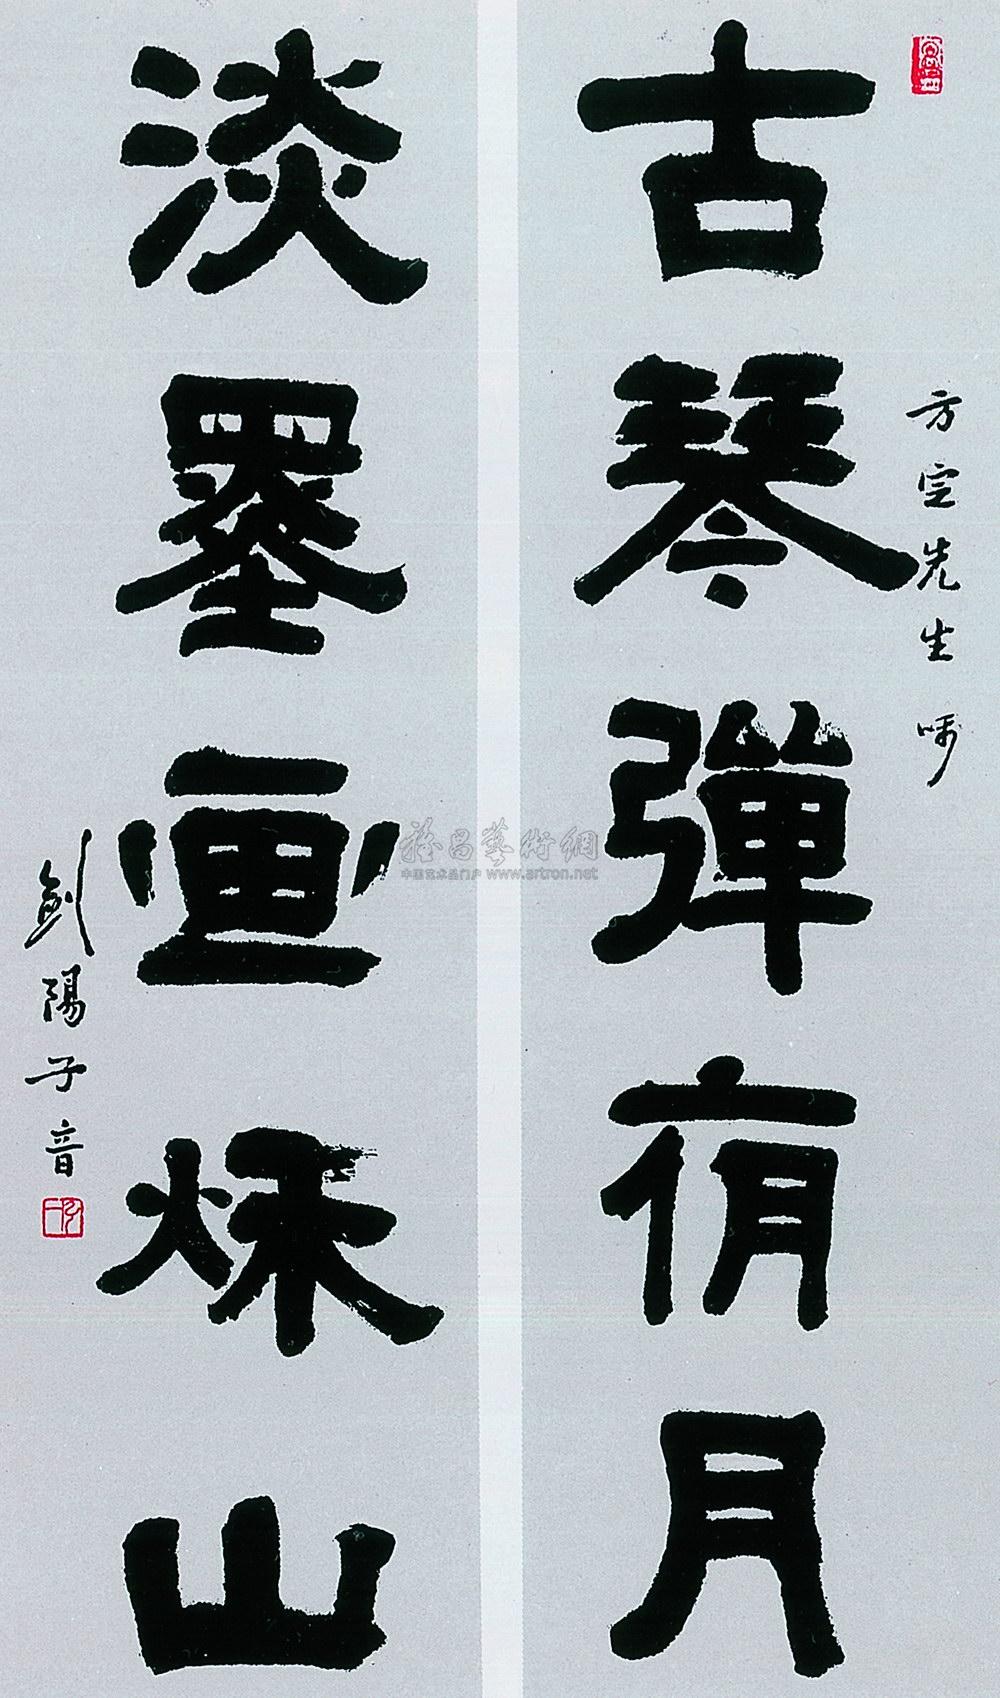 古琴彈夜月
方先生嘱
淡墨画秌山
劍陽子音
雅昌藝術網
中国艺术品门户 www.artron.net